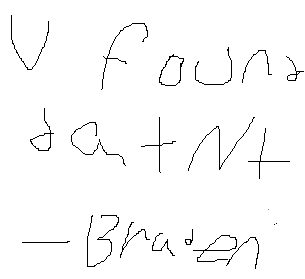 U found
dat Nt
- Braden